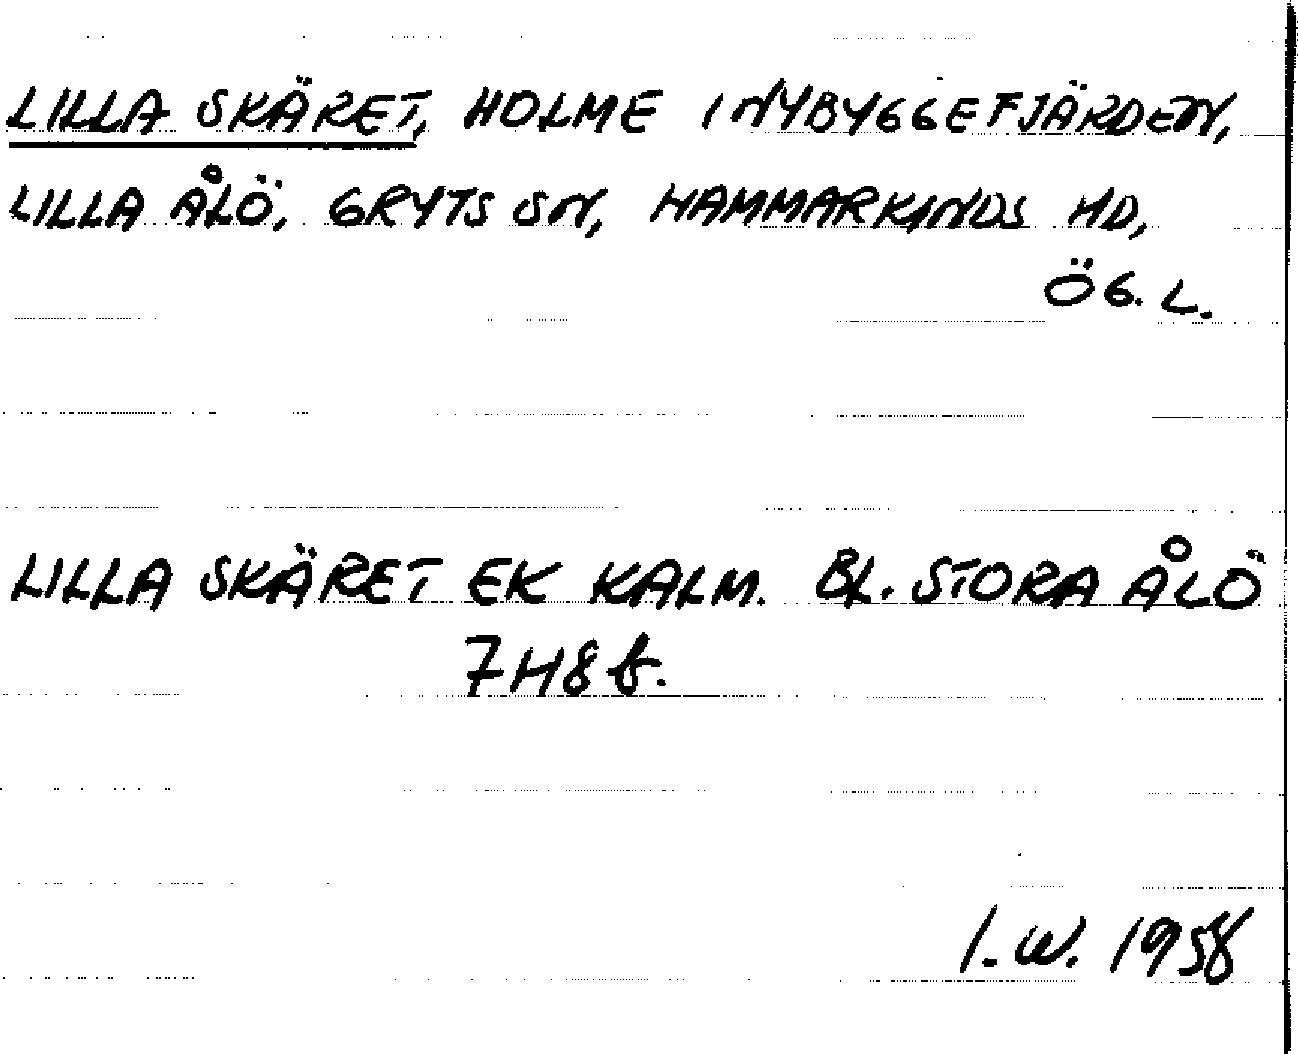 LILLA SKÄRET, HOLME I NYBYGGEFJÄRDEN,
LILLA ÅLÖ, GRYTS SN, HAMMARKINDS HD,
ÖG. L.
LILLA SKÄRET EK KALM. BL. STORA ÅLÖ
7H8f.
I.W. 1958